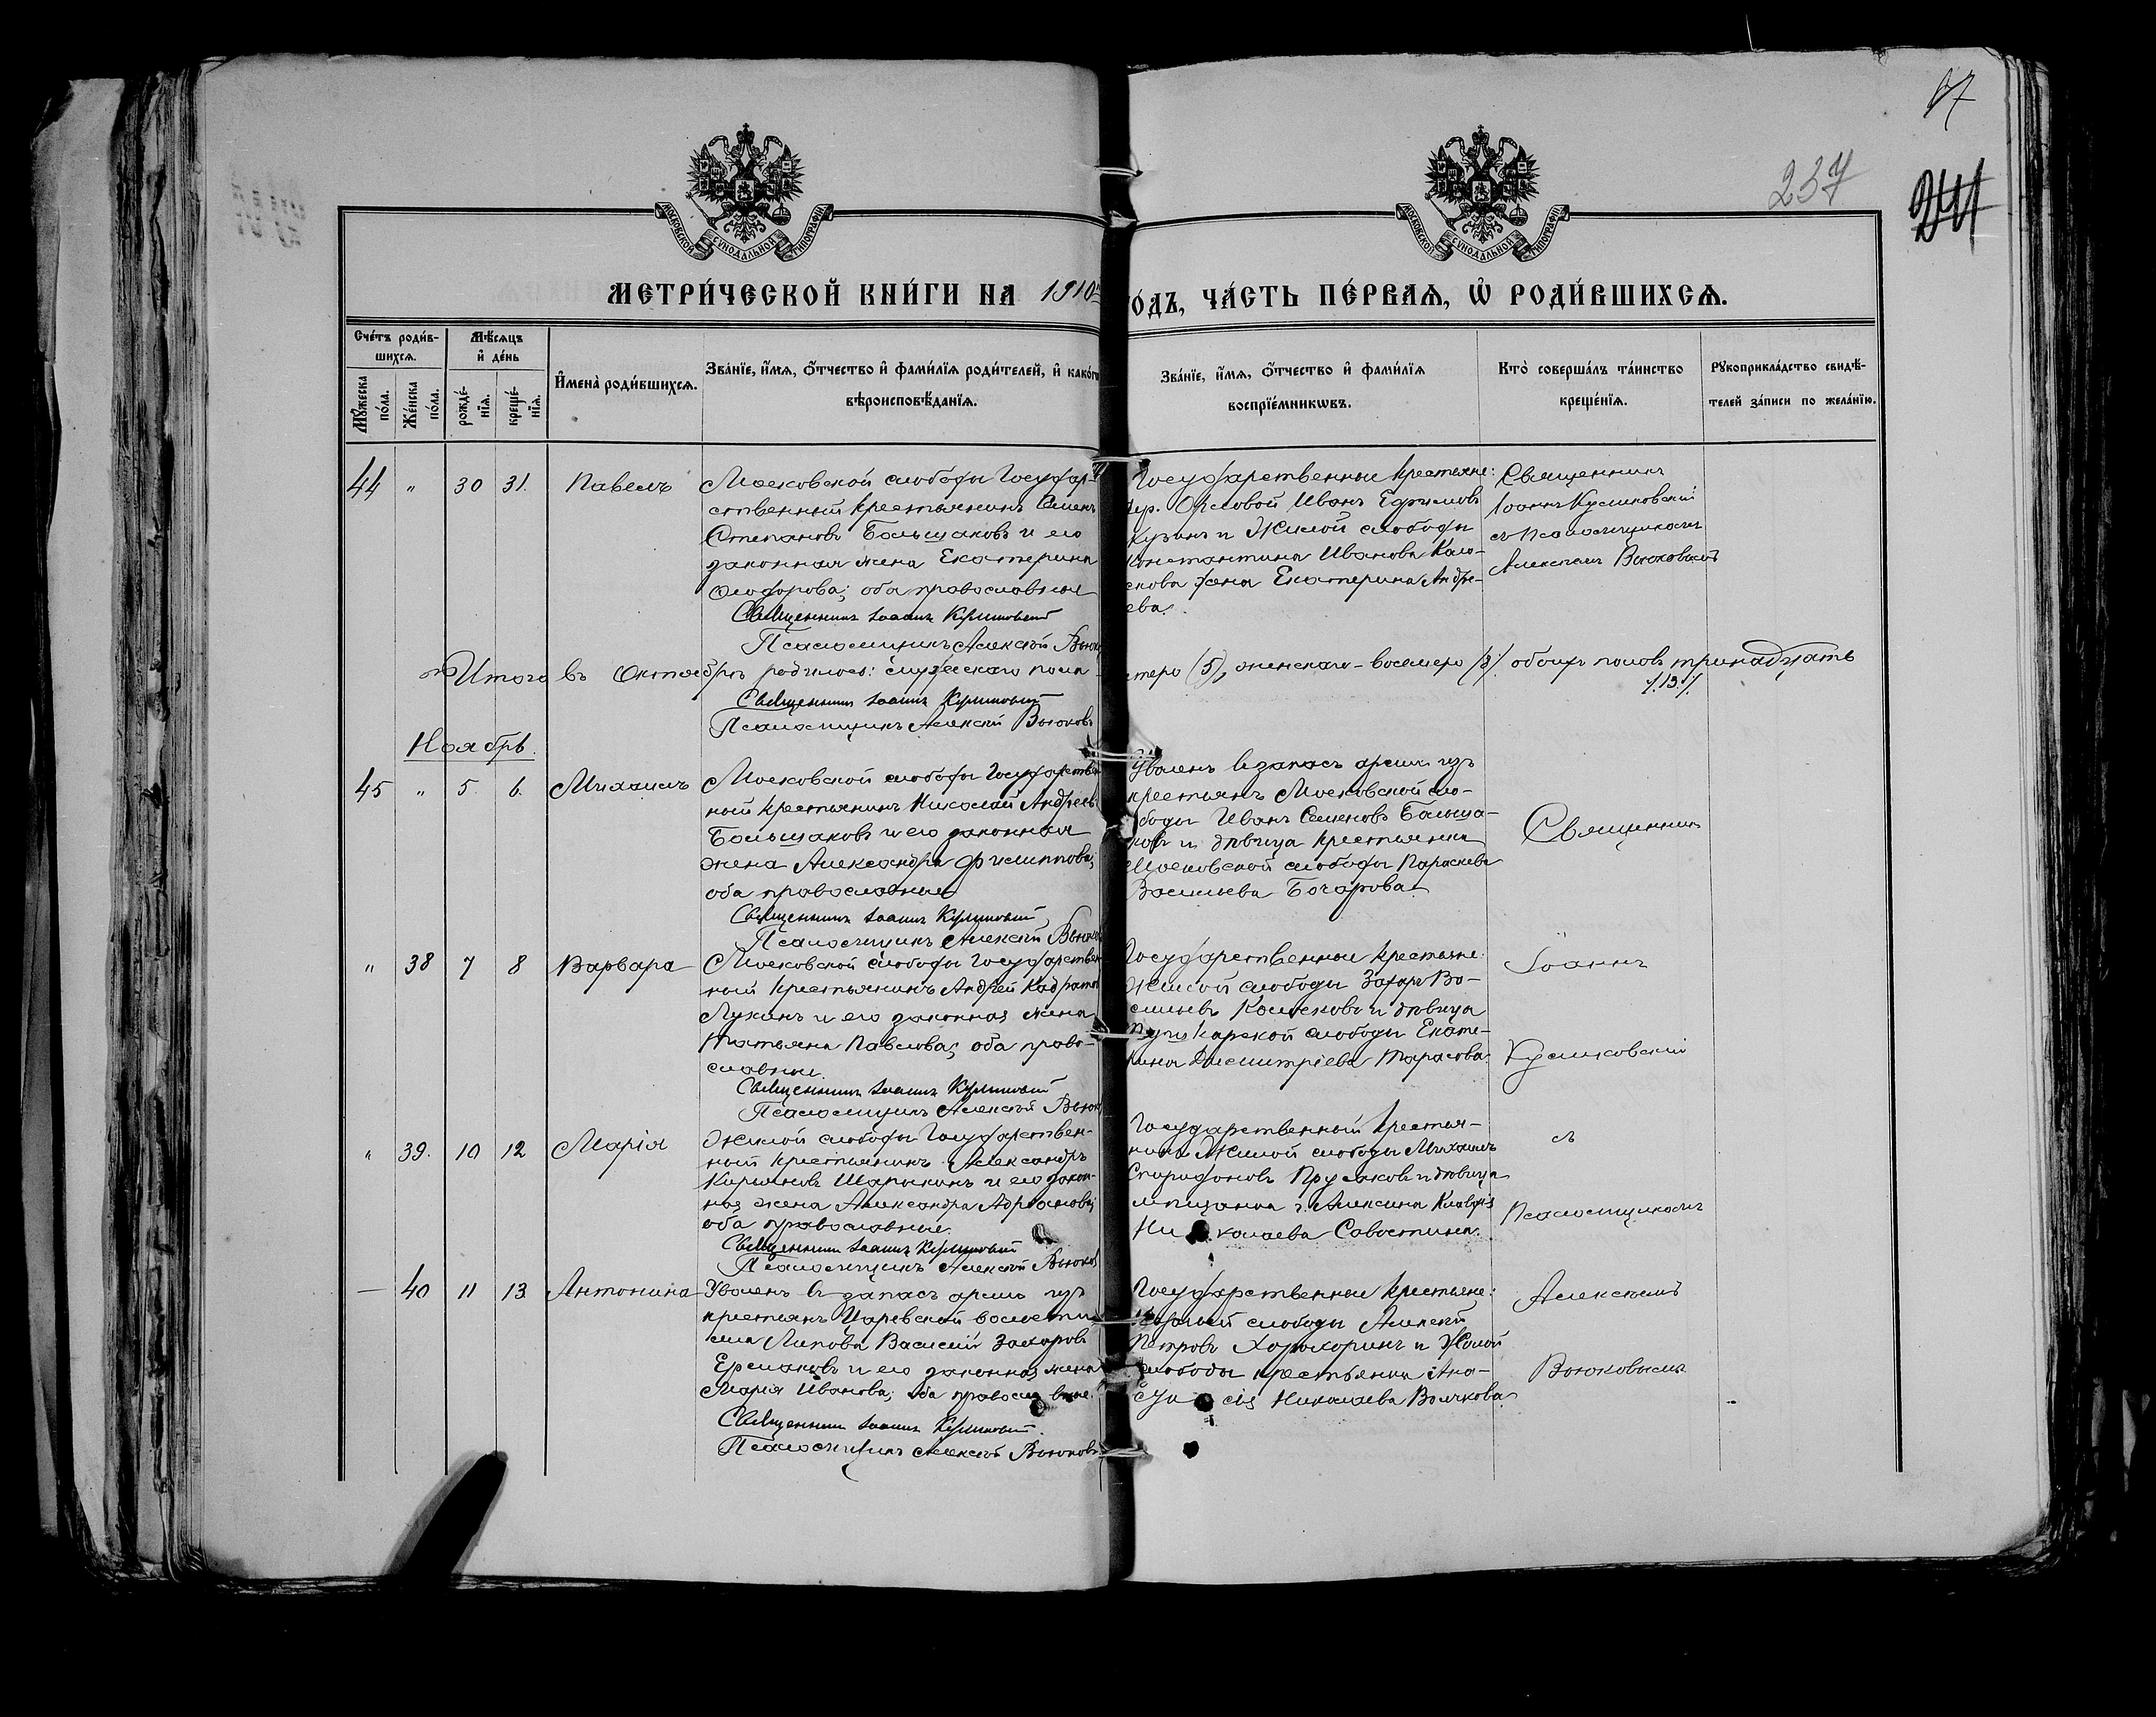 97
237
241
МОСКОВСКОЙ СѴНОДАЛЬНОЙ ТИПОГРАФІИ
МОСКОВСКОЙ СѴНОДАЛЬНОЙ ТИПОГРАФІИ
МЕТРИ́ЧЕСКОЙ КНИ́ГИ НА 1910 ГО́ДЪ, ЧА́СТЬ ПЕ́РВАЯ, Ѡ҆ РОДИ́ВШИХСѦ.
Сче́тъ роди́в-
шихсѧ.
Мꙋ́жеска по́ла.
Же́нска по́ла.
Мѣ́сѧцъ
и҆ де́нь
рожде́-
нїѧ.
креще́-
нїѧ.
И҆мена̀ роди́вшихсѧ.
Зва́нїе, и҆́мѧ, ѻ҆́тчество и҆ фами́лїѧ роди́телей, и҆ како́гѡ
вѣроисповѣ́данїѧ.
Зва́нїе, и҆́мѧ, ѻ҆́тчество и҆ фами́лїѧ
воспрїе́мникѡвъ.
Кто̀ соверша́лъ та́инство
креще́нїѧ.
Рꙋкоприкла́дство свидѣ́-
телей за́писи по жела́нїю.
44 " 30 31. Павелъ
Московской слободы Государ-
ственный крестьянинъ Семенъ
Степановъ Большаковъ и его
законная жена Екатерина
Ѳеодорова; оба православные
Священникъ Іоаннъ Куликовскій
Псаломщикъ Алексѣй Вьюковъ
Государственные крестьяне:
дер. Орловой Иванъ Ефимовъ
Кузинъ и Жилой слободы
Константина Иванова
жена Екатерина Андре-
ева.
Священникъ
Іоаннъ Куликовскій
съ псаломщикомъ
Алексѣемъ Вьюковымъ
Итого въ Октябрѣ родилось: мужеского пола - пятеро (5), женскаго - восмеро /8/. обоихъ половъ тринадцать
/.13./.
Священникъ Іоаннъ Куликовскій
Псаломщикъ Алексѣй Вьюковъ
Ноябрь.
45 " 5. 6. Михаилъ
Московской слободы Государствен
ный крестьянинъ Николай Андреевъ
Большаковъ и его законная
жена Александра Филиппова;
оба православные
Священникъ Іоаннъ Куликовскій
Псаломщикъ Алексѣй Вьюковъ
Уволенъ въ запасъ арміи изъ
крестьянъ Московской сло-
боды Иванъ Семеновъ Больша-
ковъ и дѣвица крестьянка
Московской слободы Параскева
Васильева Бочарова.
" 38 7 8 Варвара
Московской слободы Государствен
ный крестьянинъ Андрей
Лукинъ и его законная жена
Татьяна Павлова; оба право-
славные.
Священникъ Іоаннъ Куликовскій
Псаломщикъ Алексѣй Вьюковъ
Государственные крестьяне:
Жилой слободы Захаръ Ва-
сильевъ и дѣвица
Пушкарской слободы Екате-
рина Димитріева Тарасова.
" 39. 10 12 Марія
Жилой слободы Государствен-
ный крестьянинъ Александръ
Шарыкинъ и его закон-
ная жена Александра Адріанова;
оба православные.
Священникъ Іоаннъ Куликовскій
Псаломщикъ Алексѣй Вьюковъ
Государственный крестья-
нинъ Жилой слободы Михаилъ
Спиридоновъ и дѣвица
мѣщанка г. Алексина Клавдія
Николаева Савостина.
— 40 11 13 Антонина
Уволенъ въ запасъ арміи изъ
крестьянъ Царевской волости
села Липова Василій Захаровъ
Ермаковъ и его законная жена
Марія Иванова; оба православные.
Священникъ Іоаннъ Куликовскій
Псаломщикъ Алексѣй Вьюковъ
Государственные крестьяне:
слободы Алексѣй
Петровъ Хорхоринъ и Жилой
слободы крестьянка Ана-
стасія Николаева Волчкова.
Священникъ
Іоаннъ
Куликовскій
съ
Псаломщикомъ
Алексѣемъ
Вьюковымъ